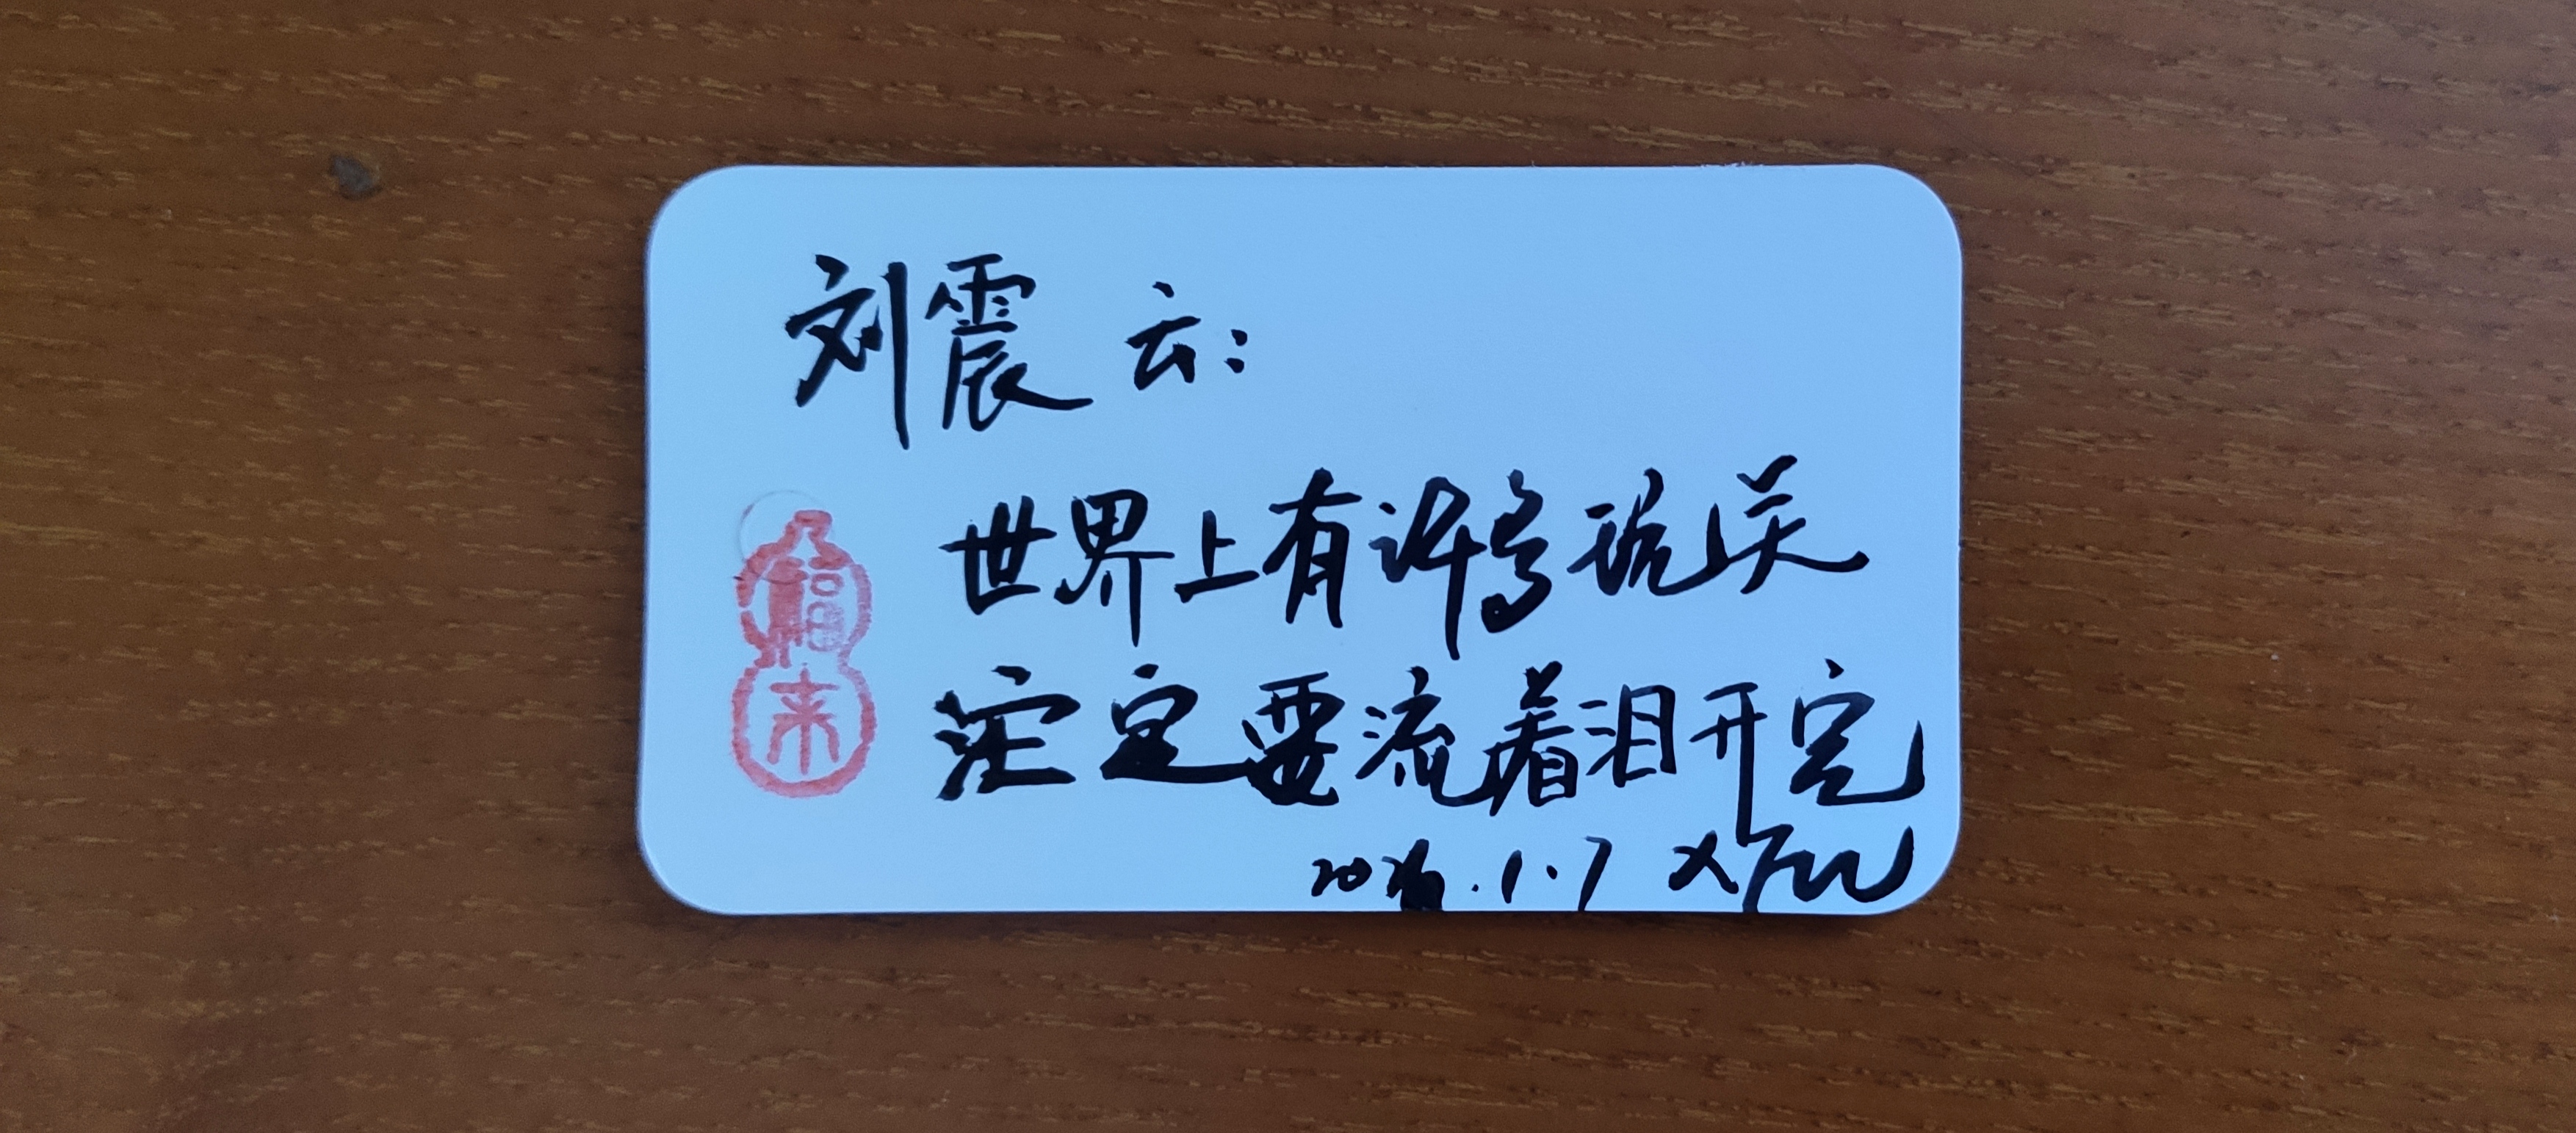 刘震云:
世界上有许多玩笑
注定要流着泪开完
福来
1.7